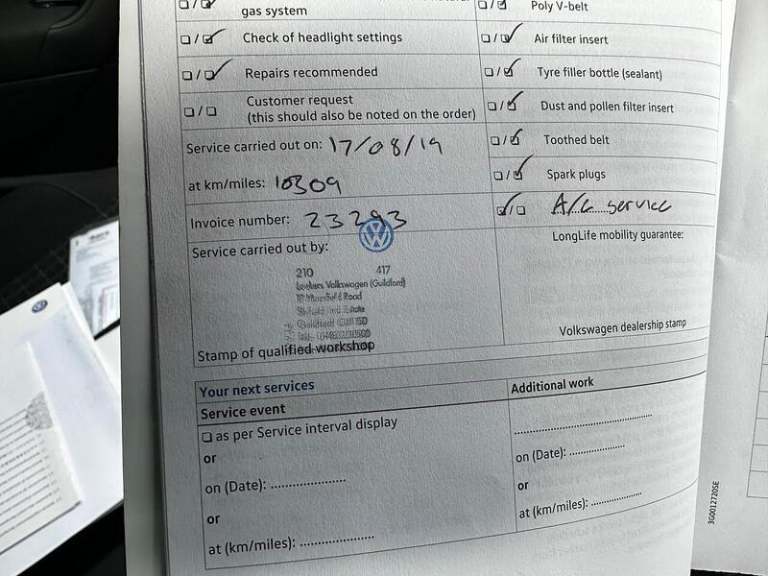 gas system
Check of headlight settings
Repairs recommended
Customer request
(this should also be noted on the order)
Service carried out on: 17/08/19
at km/miles: 10309
Invoice number: 23293
Service carried out by:
210 417
Volkswagen (Guildford)
Road
Stamp of qualified workshop
Poly V-belt
Air filter insert
Tyre filler bottle (sealant)
Dust and pollen filter insert
Toothed belt
Spark plugs
A/C service
LongLife mobility guarantee:
Volkswagen dealership stamp
Your next services
Service event
as per Service interval display
or
on (Date):
or
at (km/miles):
Additional work
on (Date):
or
at (km/miles):
3G0012720SE